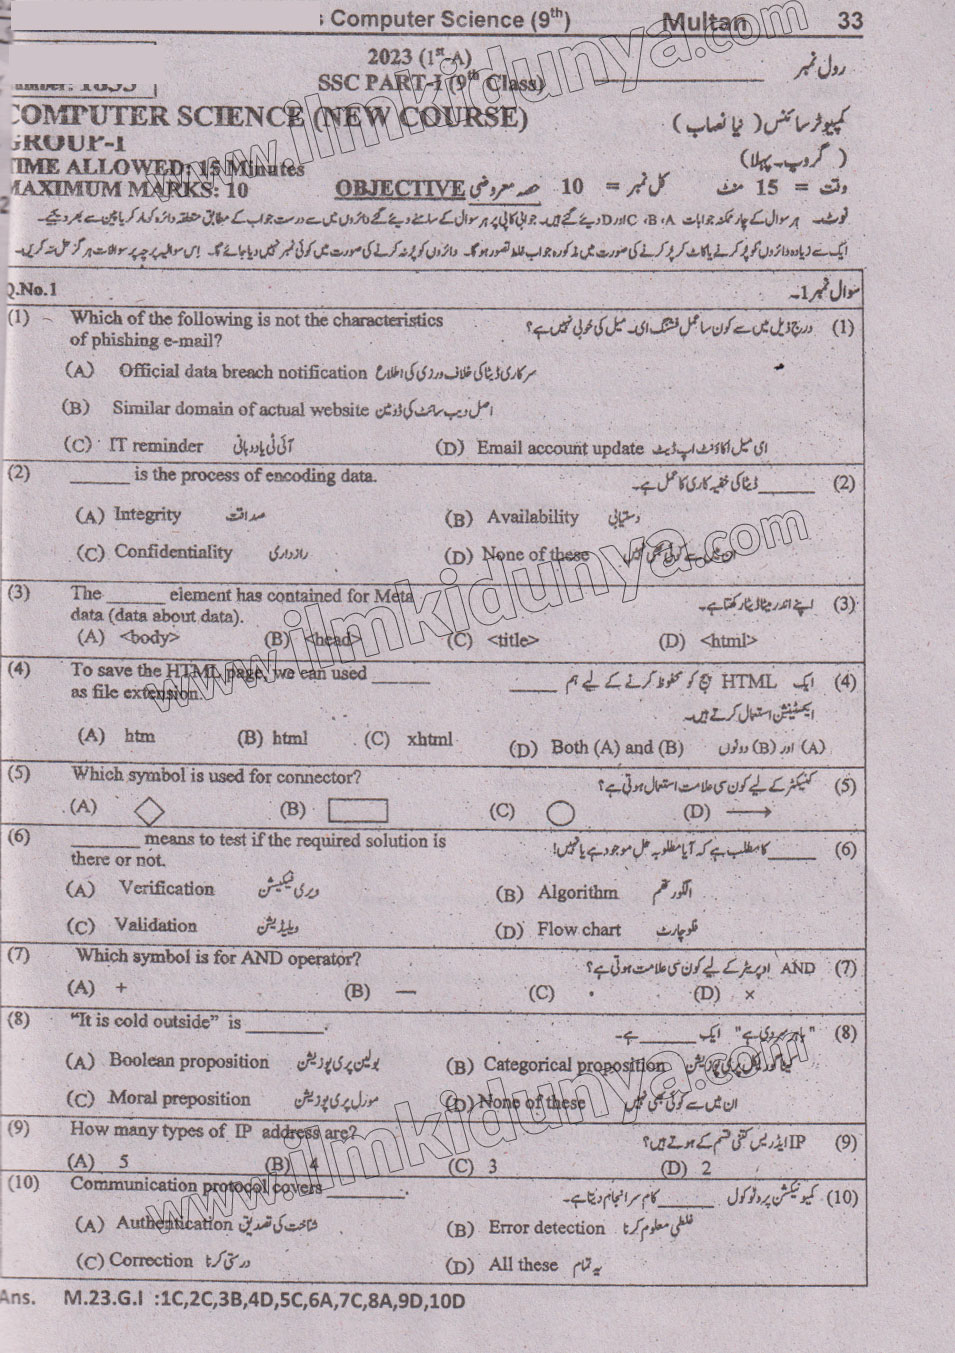 s Computer Science (9th) Multan 33
2023 (1st-A)
SSC PART-I (9th Class) رول نمبر
COMPUTER SCIENCE (NEW COURSE) کمپیوٹر سائنس (نیا نصاب)
GROUP-I (گروپ۔پہلا)
TIME ALLOWED: 15 Minutes وقت = 15 منٹ
MAXIMUM MARKS: 10 OBJECTIVE حصہ معروضی کل نمبر = 10
نوٹ۔ ہر سوال کے چار ممکنہ جوابات A، B، C اور D دیئے گئے ہیں۔ جوابی کاپی پر ہر سوال کے سامنے دیئے گئے دائروں میں سے درست جواب کے مطابق متعلقہ دائرہ کو مارکر یا پین سے بھر دیجئے۔
ایک سے زیادہ دائروں کو پُر کرنے یا کاٹ کر پُر کرنے کی صورت میں مذکورہ جواب غلط تصور ہوگا۔ دائروں کو پُر نہ کرنے کی صورت میں کوئی نمبر نہیں دیا جائے گا۔ اِس سوالیہ پرچہ پر سوالات ہرگز حل نہ کریں۔
Q.No.1 سوال نمبر 1۔
(1) Which of the following is not the characteristics درج ذیل میں سے کون سا عمل فشنگ ای۔میل کی خوبی نہیں ہے؟ (1)
of phishing e-mail?
(A) Official data breach notification سرکاری ڈیٹا کی خلاف ورزی کی اطلاع
(B) Similar domain of actual website اصل ویب سائٹ کی ڈومین
(C) IT reminder آئی ٹی یاددہانی (D) Email account update ای میل اکاؤنٹ اپ ڈیٹ
(2) ______ is the process of encoding data. ______ ڈیٹا کی خفیہ کاری کا عمل ہے۔ (2)
(A) Integrity صداقت (B) Availability دستیابی
(C) Confidentiality رازداری (D) None of these ان میں سے کوئی بھی نہیں
(3) The ______ element has contained for Meta اپنے اندر میٹا ڈیٹا رکھتا ہے۔ (3)
data (data about data).
(A) <body> (B) <head> (C) <title> (D) <html>
(4) To save the HTML page, we can used ______ ایک HTML پیج کو محفوظ کرنے کے لیے ہم ______ (4)
as file extension. ایکسٹینشن استعمال کرتے ہیں۔
(A) htm (B) html (C) xhtml (D) Both (A) and (B) (A) اور (B) دونوں
(5) Which symbol is used for connector? کنیکٹر کے لیے کون سی علامت استعمال ہوتی ہے؟ (5)
(A) ◇ (B) ▭ (C) ○ (D) →
(6) ______ means to test if the required solution is ______ کا مطلب ہے کہ آیا مطلوبہ حل موجود ہے یا نہیں! (6)
there or not.
(A) Verification ویری فیکیشن (B) Algorithm الگورتھم
(C) Validation ویلیڈیشن (D) Flow chart فلو چارٹ
(7) Which symbol is for AND operator? AND اوپریٹر کے لیے کون سی علامت ہوتی ہے؟ (7)
(A) + (B) — (C) • (D) ×
(8) “It is cold outside” is ______. "باہر سردی ہے" ایک ______ ہے۔ (8)
(A) Boolean proposition بولین پری پوزیشن (B) Categorical proposition کیٹاگوریکل پری پوزیشن
(C) Moral preposition مورل پری پوزیشن (D) None of these ان میں سے کوئی بھی نہیں
(9) How many types of IP address are? IP ایڈریس کتنی قسم کے ہوتے ہیں؟ (9)
(A) 5 (B) 4 (C) 3 (D) 2
(10) Communication protocol covers ______. کمیونیکیشن پروٹوکول ______ کام سرانجام دیتا ہے۔ (10)
(A) Authentication شناخت کی تصدیق (B) Error detection غلطی معلوم کرنا
(C) Correction درستی کرنا (D) All these یہ تمام
Ans. M.23.G.I :1C,2C,3B,4D,5C,6A,7C,8A,9D,10D
www.ilmkidunya.com
www.ilmkidunya.com
www.ilmkidunya.com